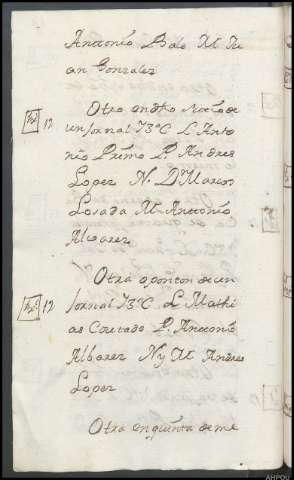 Antonio Bale M. Ju
an Gonzalez
Otro en dho
un Jornal 73ª C. L. Anto
nio Primo P. Andres
Lopez N. D. Marcos
Losada M. Antonio
Alvarez
12
Otra o ponton de un
12 Jornal 73ª C. L. Mathi
as Cortado P. Antonio
Albarez N. y M. Andres
Lopez
Otra en quenta de me
AHPOU